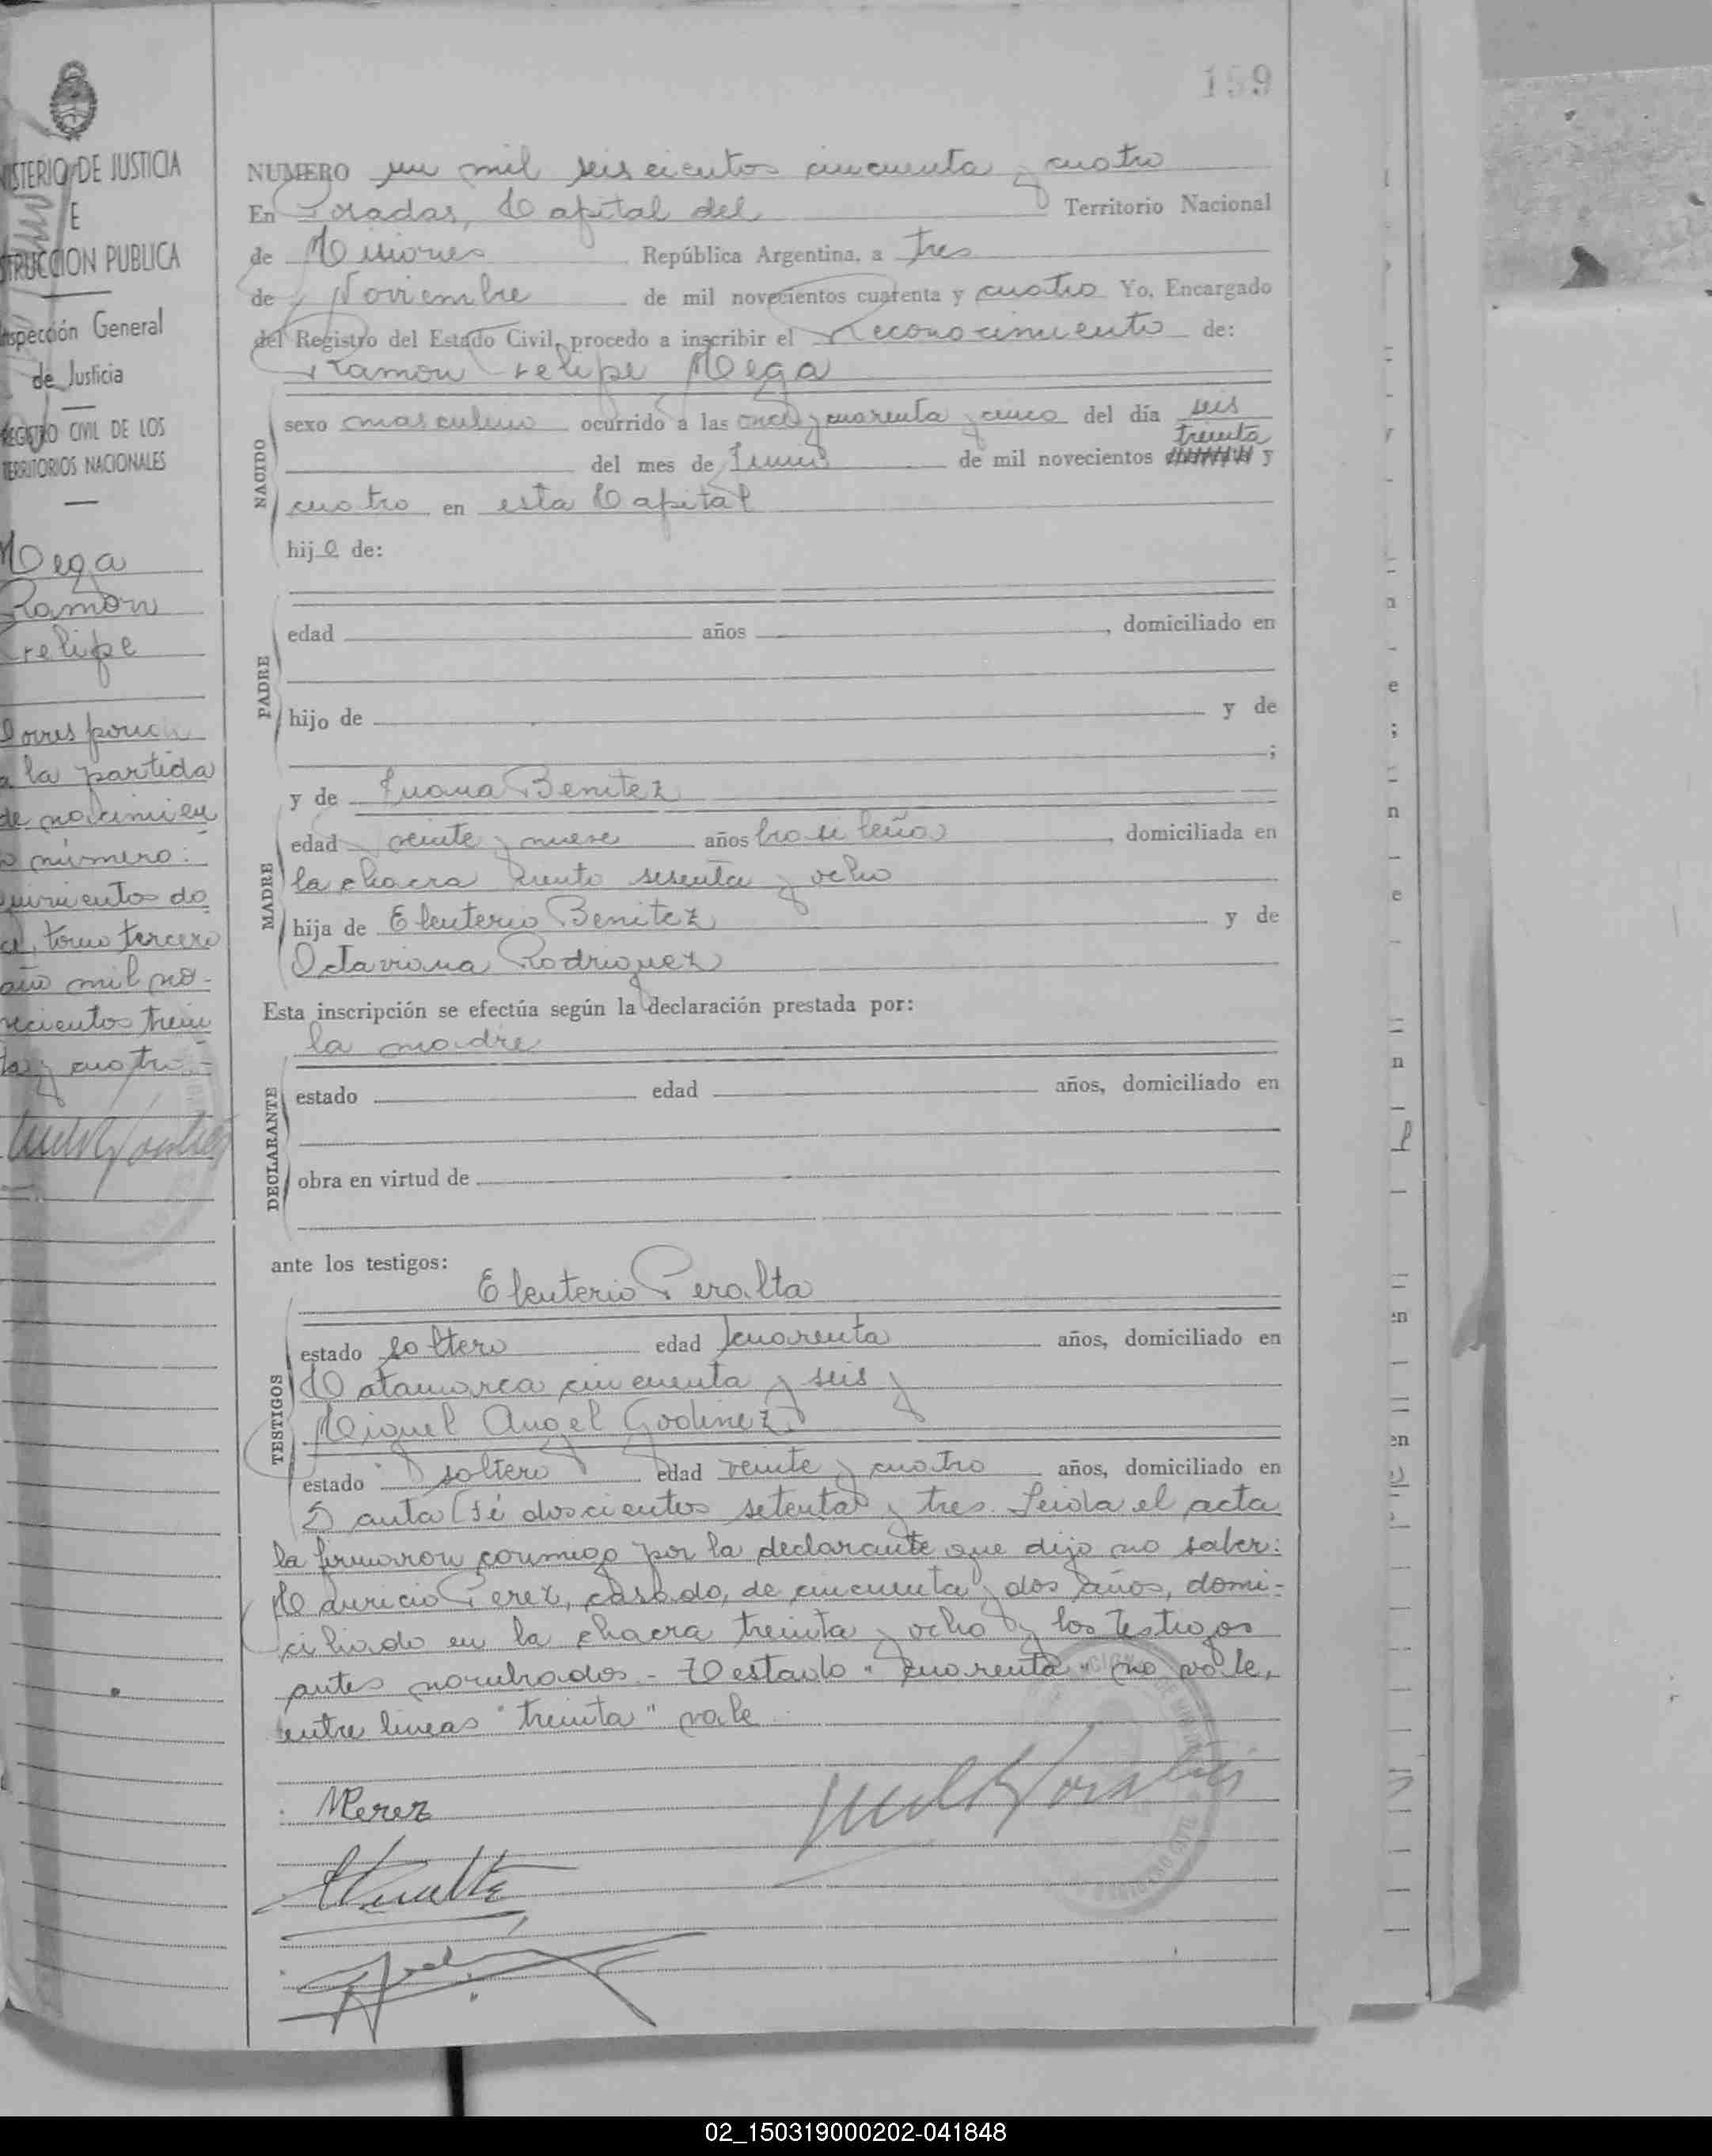 159
ISTERIO DE JUSTICIA
E
STRUCCION PUBLICA
Inspección General
de Justicia
REGISTRO CIVIL DE LOS
TERRITORIOS NACIONALES
Ramon
Felipe
a la partida
de nacimien
o número:
quinientos do
ce, tomo tercero
año mil no-
vecientos trein
ta y cuatro.-
NUMERO un mil seiscientos cincuenta y cuatro
En Posadas, Capital del Territorio Nacional
de Misiones República Argentina, a tres
de Noviembre de mil novecientos cuarenta y cuatro Yo, Encargado
del Registro del Estado Civil, procedo a inscribir el Reconocimiento de:
Ramon Felipe
NACIDO
sexo masculino ocurrido a las once y cuarenta y cinco del día seis
treinta
del mes de de mil novecientos y
cuatro en esta Capital
hijo de:
PADRE
edad años , domiciliado en
hijo de y de
;
MADRE
y de Juana Benitez
edad veinte y nueve años brasileña , domiciliada en
la chacra ciento sesenta y ocho
hija de Eleuterio Benitez y de
Octaviana Rodriguez
Esta inscripción se efectúa según la declaración prestada por:
la madre
DECLARANTE
estado edad años, domiciliado en
obra en virtud de
ante los testigos:
Eleuterio Peralta
TESTIGOS
estado soltero edad cuarenta años, domiciliado en
Catamarca cincuenta y seis y
Miguel Angel Godinez
estado soltero edad veinte y cuatro años, domiciliado en
Santa Fé doscientos setenta y tres. Leida el acta
la firmaron conmigo por la declarante que dijo no saber:
Mauricio Perez, casado, de cincuenta y dos años, domi-
ciliado en la chacra treinta y ocho y los testigos
antes nombrados.- Testado "cuarenta" no vale,
entre lineas "treinta" vale
MPerez
02_150319000202-041848